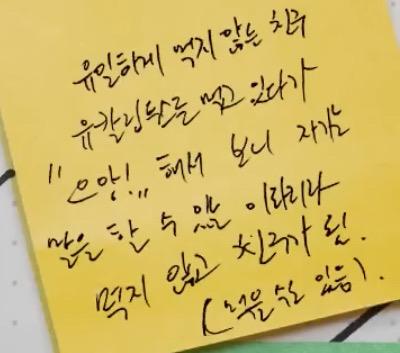 유일하게 먹지 않는 친구
유칼립투스를 먹고 있다가
"으앙!" 해서 보니 자기는
말을 할 수 있는 이파리라
먹지 않고 친구가 됨.
(먹을 수도 있음).